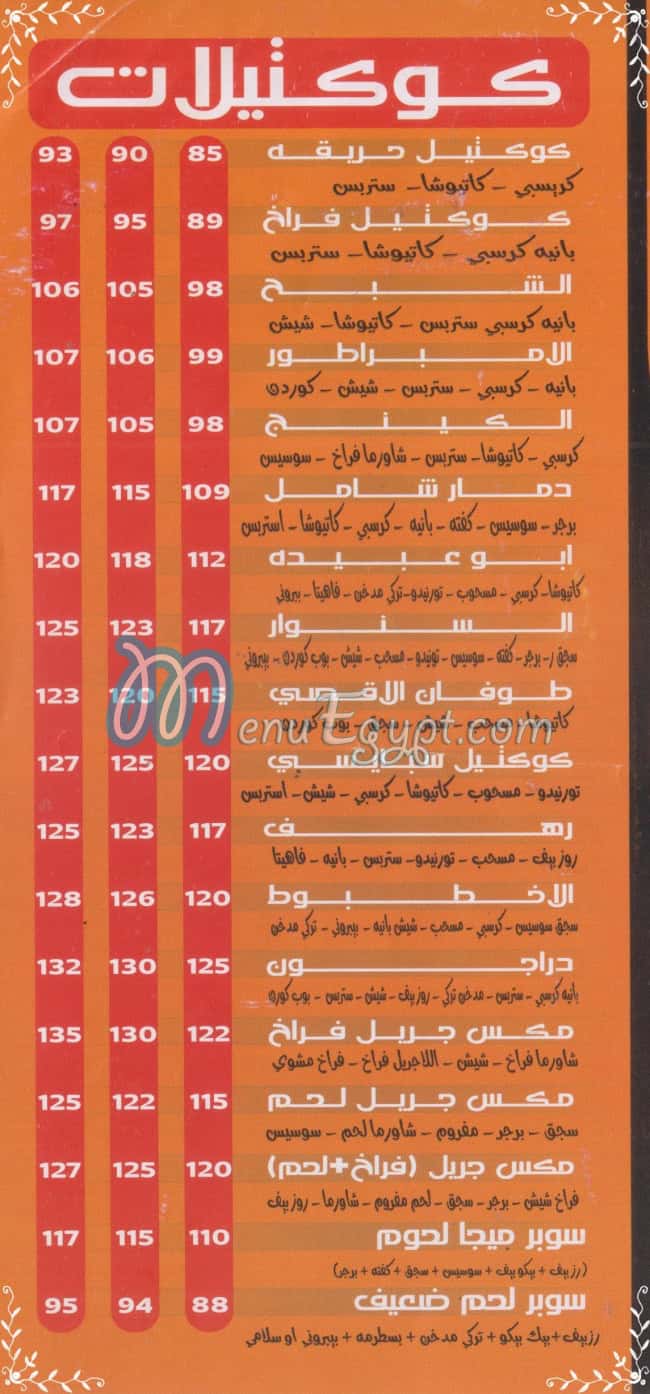 كوكتيلات
كوكتيل حريقه 85 90 93
كريسبي - كاتيوشا - ستربس
كوكتيل فراخ 89 95 97
بانيه كرسبي - كاتيوشا - ستربس
الشبح 98 105 106
بانيه كرسبي ستربس - كاتيوشا - شيش
الامبراطور 99 106 107
بانيه - كرسبي - ستربس - شيش - كوردن
الكينج 98 105 107
كرسبي - كاتيوشا - ستربس - شاورما فراخ - سوسيس
دمار شامل 109 115 117
برجر - سوسيس - كفته - بانيه - كرسبي - كاتيوشا - استربس
ابو عبيده 112 118 120
كاتيوشا - كرسبي - مسحوب - تورنيدو - تركي مدخن - فاهيتا - ببروني
السنوار 117 123 125
سجق ر - برجر - كفته - سوسيس - تونيدو - مسحب - شيش - بوب كوردن - بيبروني
طوفان الاقصي 115 120 123
كاتيوشا - مسحب - شيش - سجق - بوب كوردن
MenuEgypt.com
كوكتيل سبايسي 120 125 127
تورنيدو - مسحوب - كاتيوشا - كرسبي - شيش - استربس
رهف 117 123 125
روز بيف - مسحب - تورنيدو - ستربس - بانيه - فاهيتا
الاخطبوط 120 126 128
سجق سوسيس - كرسبي - مسحب - شيش بانيه - بيبروني - تركي مدخن
دراجون 125 130 132
بانيه كرسبي - ستربس - مدخن تركي - روز بيف - شيش - ستربس - بوب كورن
مكس جريل فراخ 122 130 135
شاورما فراخ - شيش - اللاجريل فراخ - فراخ مشوي
مكس جريل لحم 115 122 125
سجق - برجر - مفروم - شاورما لحم - سوسيس
مكس جريل (فراخ+لحم) 120 125 127
فراخ شيش - برجر - سجق - لحم مفروم - شاورما - روز بيف
سوبر ميجا لحوم 110 115 117
(رز بيف + بيكو بيف + سوسيس + سجق + كفته + برجر)
سوبر لحم ضعيف 88 94 95
رزبيف + بيك بيكو + تركي مدخن + بسطرمه + بيبروني او سلامي